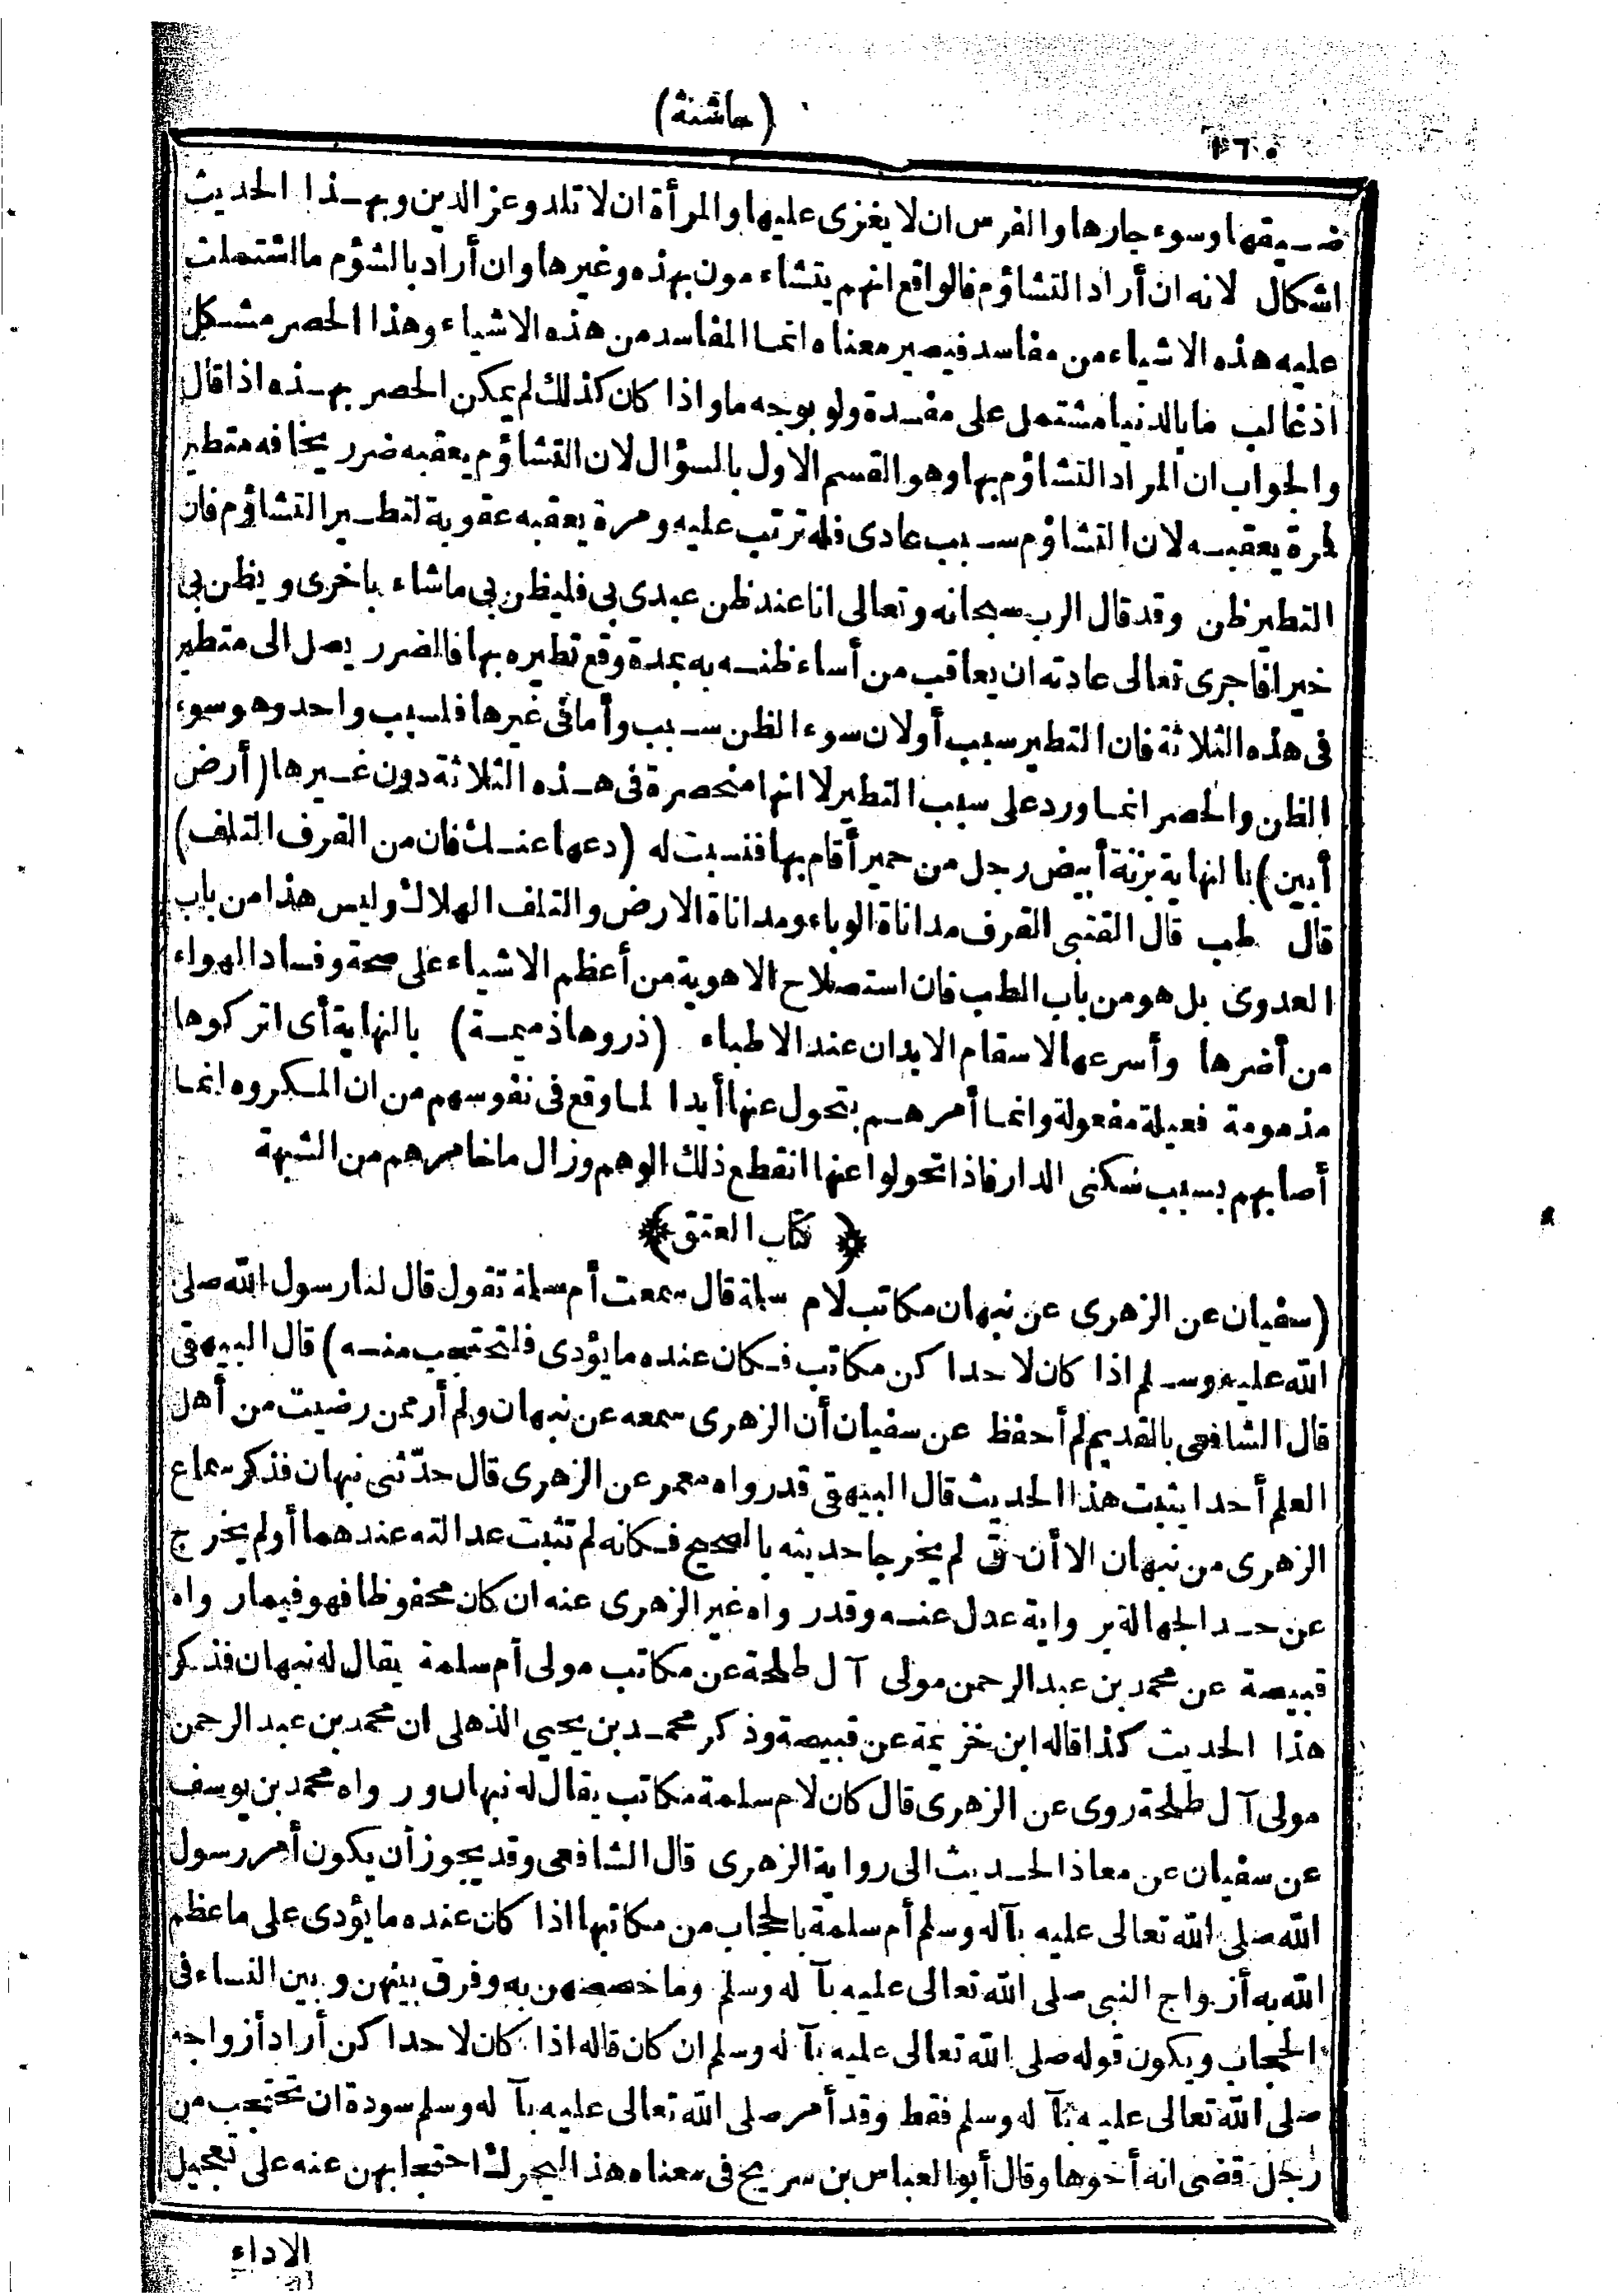 (حاشية)
١٦٠
ضيقها وسوء جارها والفرس ان لا يغزى عليها والمرأة ان لا تلد وعز الدين وبهذا الحديث
اشكال لانه ان أراد التشاؤم فالواقع انهم يتشاءمون بهذه وغيرها وان أراد بالشؤم ما اشتملت
عليه هذه الاشياء من مفاسد فيصير معناه انما المفاسد من هذه الاشياء وهذا الحصر مشكل
اذ غالب ما بالدنيا مشتمل على مفسدة ولو بوجه ما واذا كان كذلك لم يمكن الحصر بهذه اذا قال
والجواب ان المراد التشاؤم بها وهو القسم الاول بالسؤال لان التشاؤم يعقبه ضرر يخافه متطير
لمرة يعقبه لان التشاؤم سبب عادى فله ترتب عليه ومرة يعقبه عقوبة لتطير التشاؤم فان
التطير ظن وقد قال الرب سبحانه وتعالى انا عند ظن عبدى بى فليظن بى ما شاء باخرى ويظن بى
خيرا فاجرى تعالى عادته ان يعاقب من أساء ظنه به بمدة وقع تطيره بها فالضرر يصل الى متطير
فى هذه الثلاثة فان التطير سبب أو لان سوء الظن سبب وأما فى غيرها فلسبب واحد وهو سوء
الظن والحصر انما ورد على سبب التطير لا انها منحصرة فى هذه الثلاثة دون غيرها (أرض
أبين) بالنهاية بزنة أبيض رجل من حمير أقام بها فنسبت له (دعها عنك فان من القرف التلف)
قال طب قال القتبى القرف مداناة الوباء ومداناة الارض والتلف الهلاك وليس هذا من باب
العدوى بل هو من باب الطب فان استصلاح الاهوية من أعظم الاشياء على صحة وفساد الهواء
من أضرها وأسرعها لاسقام الابدان عند الاطباء (ذروها ذميمة) بالنهاية أى اتركوها
مذمومة فعيلة مفعولة وانما أمرهم بتحول عنها أبدا لما وقع فى نفوسهم من ان المكروه انما
أصابهم بسبب سكنى الدار فاذا تحولوا عنها انقطع ذلك الوهم وزال ما خامرهم من الشبهة
﴿كتاب العتق﴾
(سفيان عن الزهرى عن نبهان مكاتب لام سلمة قال سمعت أم سلمة تقول قال لنا رسول الله صلى
الله عليه وسلم اذا كان لاحدا كن مكاتب فكان عنده ما يؤدى فلتحتجب منه) قال البيهقى
قال الشافعى بالقديم لم أحفظ عن سفيان أن الزهرى سمعه عن نبهان ولم أر ممن رضيت من أهل
العلم أحدا يثبت هذا الحديث قال البيهقى قد رواه معمر عن الزهرى قال حدّثنى نبهان فذكر سماع
الزهرى من نبهان الا أن ق لم يخرجا حديثه بالصحيح فكانه لم تثبت عدالته عندهما أو لم يخرج
عن حد الجهالة برواية عدل عنه وقد رواه غير الزهرى عنه ان كان محفوظا فهو فيما رواه
قبيصة عن محمد بن عبد الرحمن مولى آل طلحة عن مكاتب مولى أم سلمة يقال له نبهان فذكر
هذا الحديث كذا قاله ابن خزيمة عن قبيصة وذكر محمد بن يحيى الذهلى ان محمد بن عبد الرحمن
مولى آل طلحة روى عن الزهرى قال كان لام سلمة مكاتب يقال له نبهان ورواه محمد بن يوسف
عن سفيان عن معاذ الحديث الى رواية الزهرى قال الشافعى وقد يجوز أن يكون أمر رسول
الله صلى الله تعالى عليه بآله وسلم أم سلمة بالحجاب من مكاتبها اذا كان عنده ما يؤدى على ما عظم
الله به أزواج النبى صلى الله تعالى عليه بآله وسلم وما خصصهن به وفرق بينهن وبين النساء فى
الحجاب ويكون قوله صلى الله تعالى عليه بآله وسلم ان كان قاله اذا كان لاحدا كن أراد أزواجه
صلى الله تعالى عليه بآله وسلم فقط وقد أمر صلى الله تعالى عليه بآله وسلم سودة ان تحتجب من
رجل قضى انه أخوها وقال أبو العباس بن سريج فى معناه هذا ليحرك احتجابهن عنه على تعجيل
الاداء